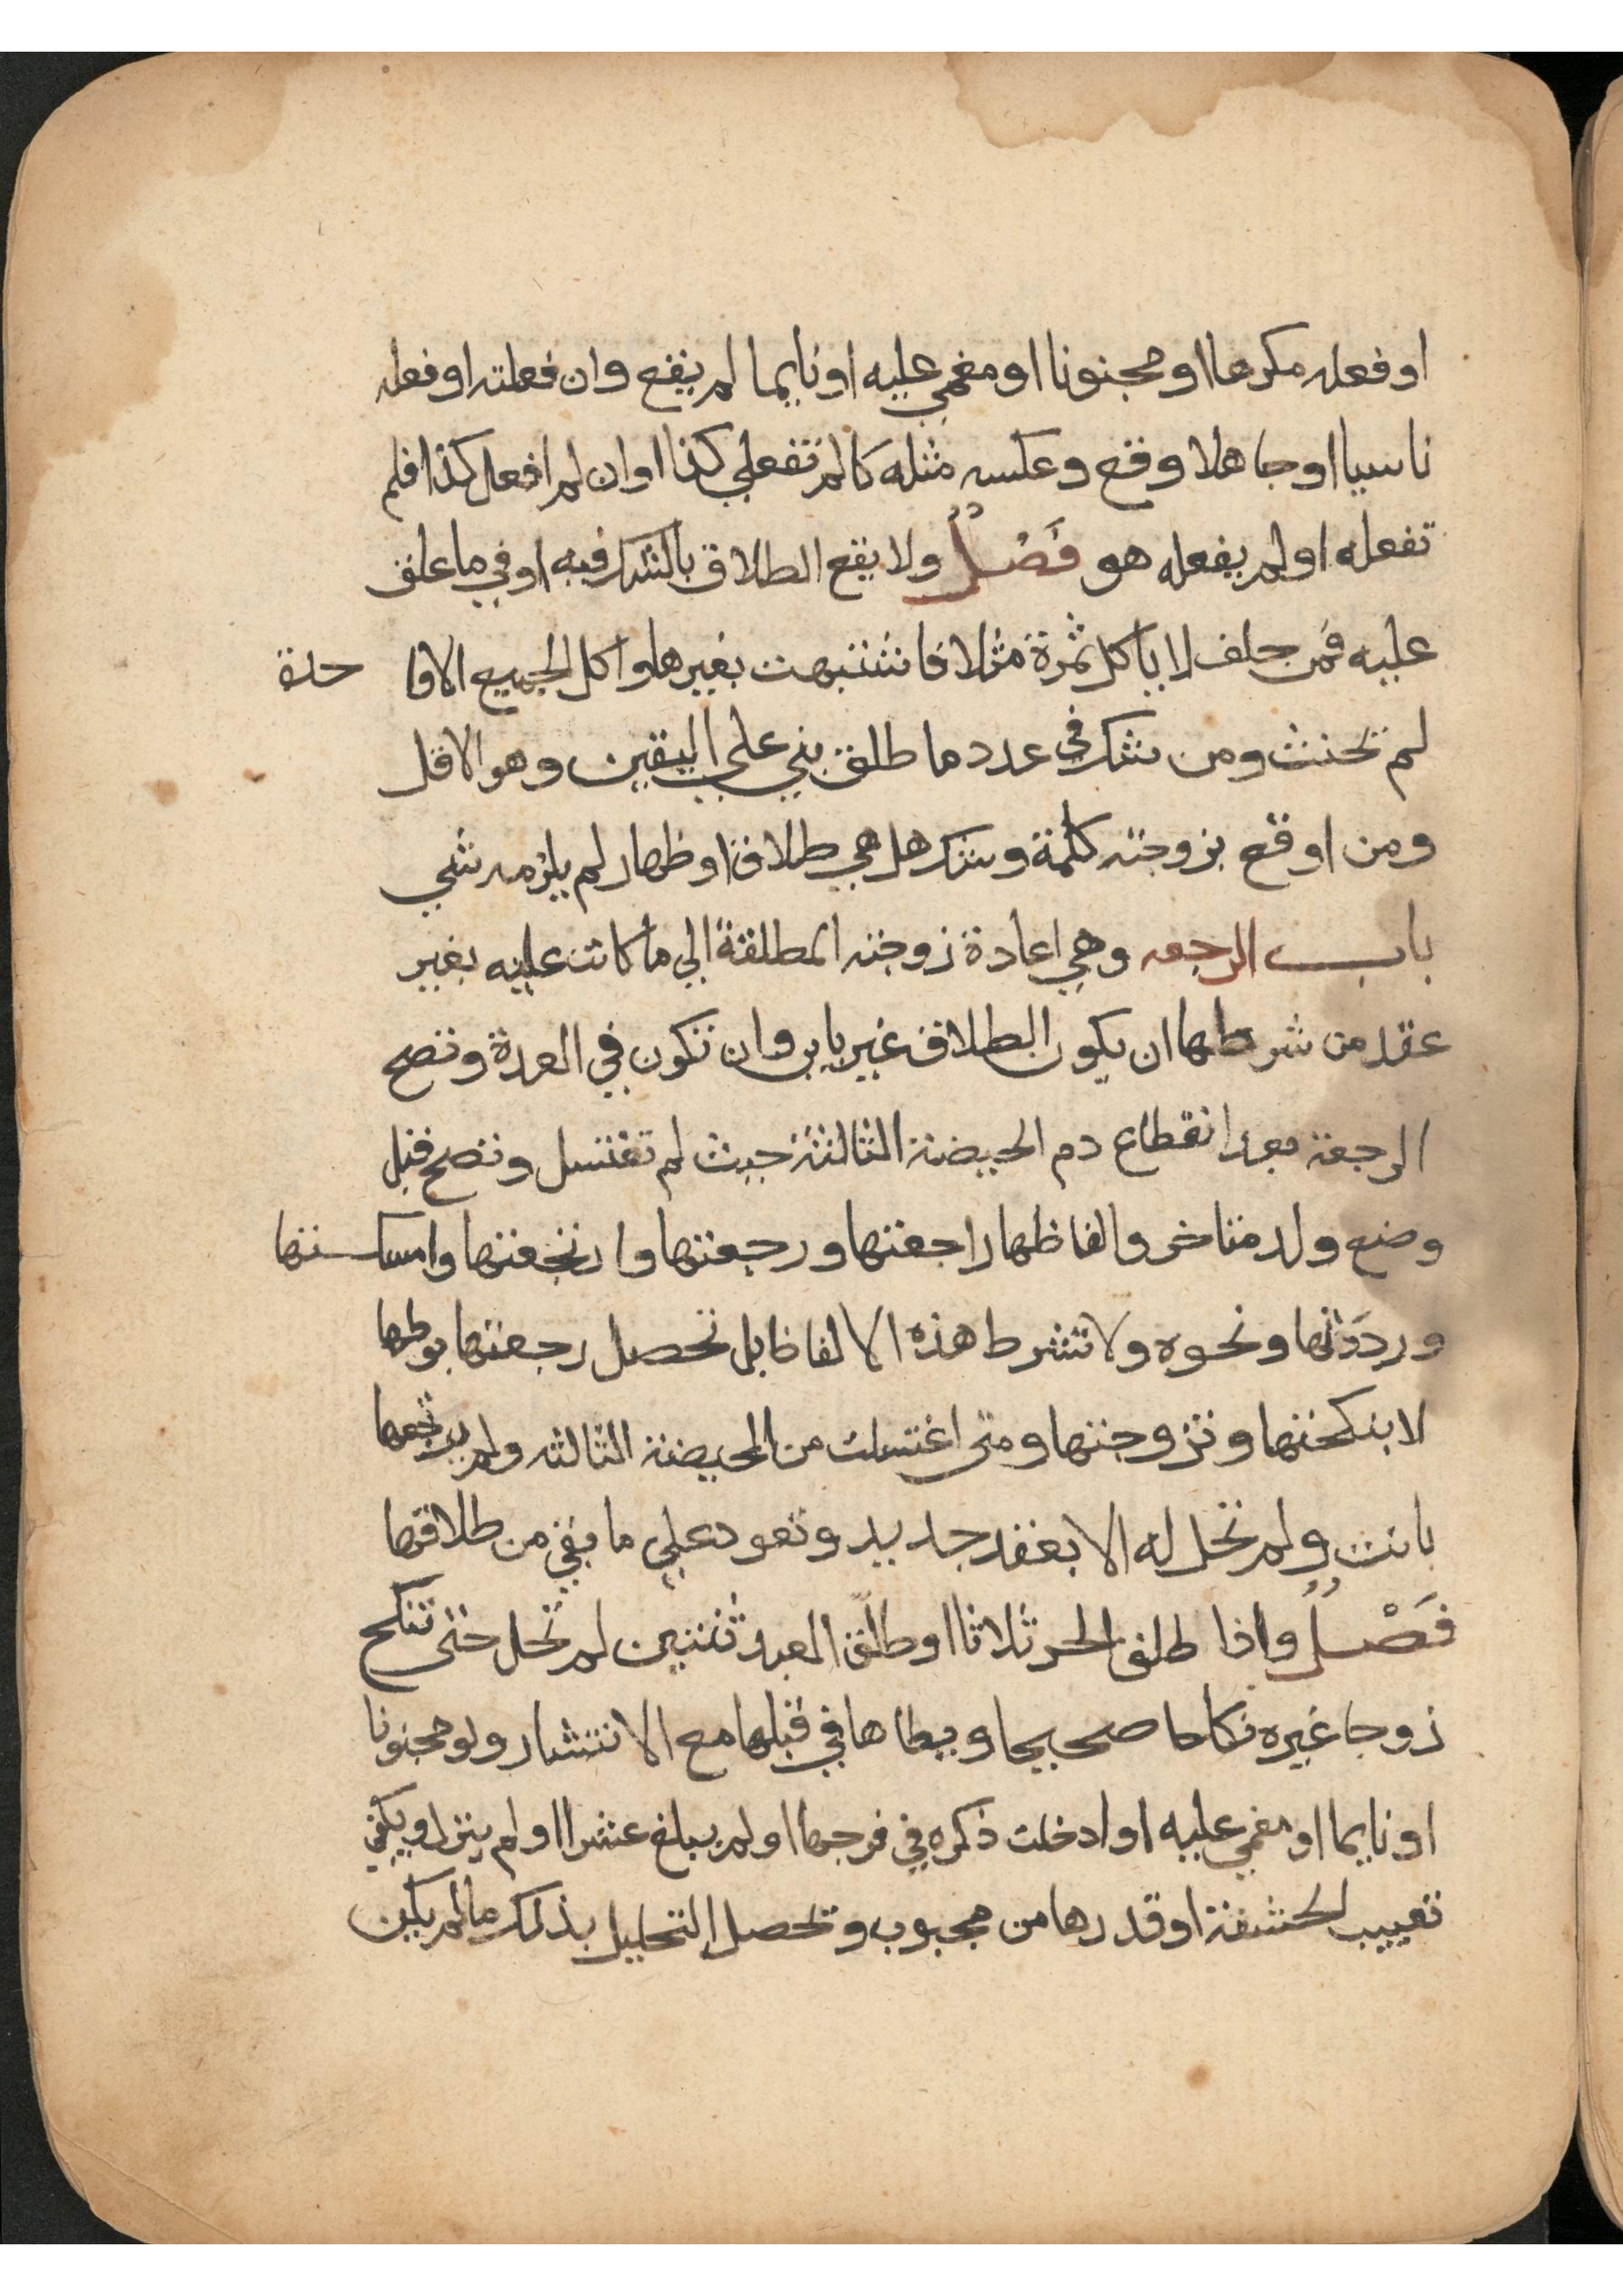 او فعله مكرها او مجنونا او مغمي عليه او نايما لم يقع وان فعلته او فعله
ناسيا او جاهلا وقع وعكسه مثله كالم تفعلي كذا او ان لم افعل كذا فلم
تفعله او لم يفعله هو فَصْلٌ ولا يقع الطلاق بالشك فيه او في ما علق
عليه فمن حلف لا ياكل ثمرة مثلا فاشتبهت بغيرها واكل الجميع الا وا حدة
لم تحنث ومن شك في عدد ما طلق بني علي اليقين وهو الاقل
ومن اوقع بزوجته كلمة وشك هل هي طلاق او ظهار لم يلزمه شي
باب الرجعه وهي اعادة زوجته المطلقة الي ما كانت عليه بغير
عقد من شرطها ان يكون الطلاق غير باين وان تكون في العدة وتصح
الرجعة بعد انقطاع دم الحيضة الثالثة حيث لم تغتسل وتصح قبل
وضع ولد متاخر والفاظها راجعتها ورجعتها وارتجعتها وامسكتها
ورددتها ونحوه ولا تشرط هذه الالفاظ بل تحصل رجعتها بوطها
لا بنكحتها وتزوجتها ومتى اغتسلت من الحيضة الثالثه ولم يرتجعها
بانت ولم تحل له الا بعقد جديد وتعود علي ما بقي من طلاقها
فَصْلٌ واذا طلق الحر ثلاثا او طلّق العبد ثنتين لم تحل حتى تنكح
زوجا غيره نكاحا صحيحا ويطاها في قبلها مع الانتشار ولو مجنونا
او نايما او مغمي عليه او ادخلت ذكره في فرجها او لم يبلغ عشرا او لم ينزل ويكفي
تغييب الحشفة او قدرها من مجبوب وتحصل التحليل بذلك ما لم يكن